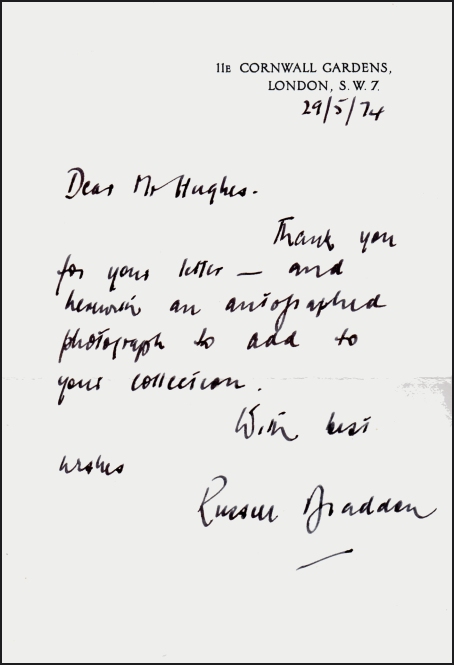 11E CORNWALL GARDENS,
LONDON, S.W. 7.
29/5/74
Dear Mr Hughes.
Thank you
for your letter — and
herewith an autographed
photograph to add to
your collection.
With best
wishes
Russell Braddon